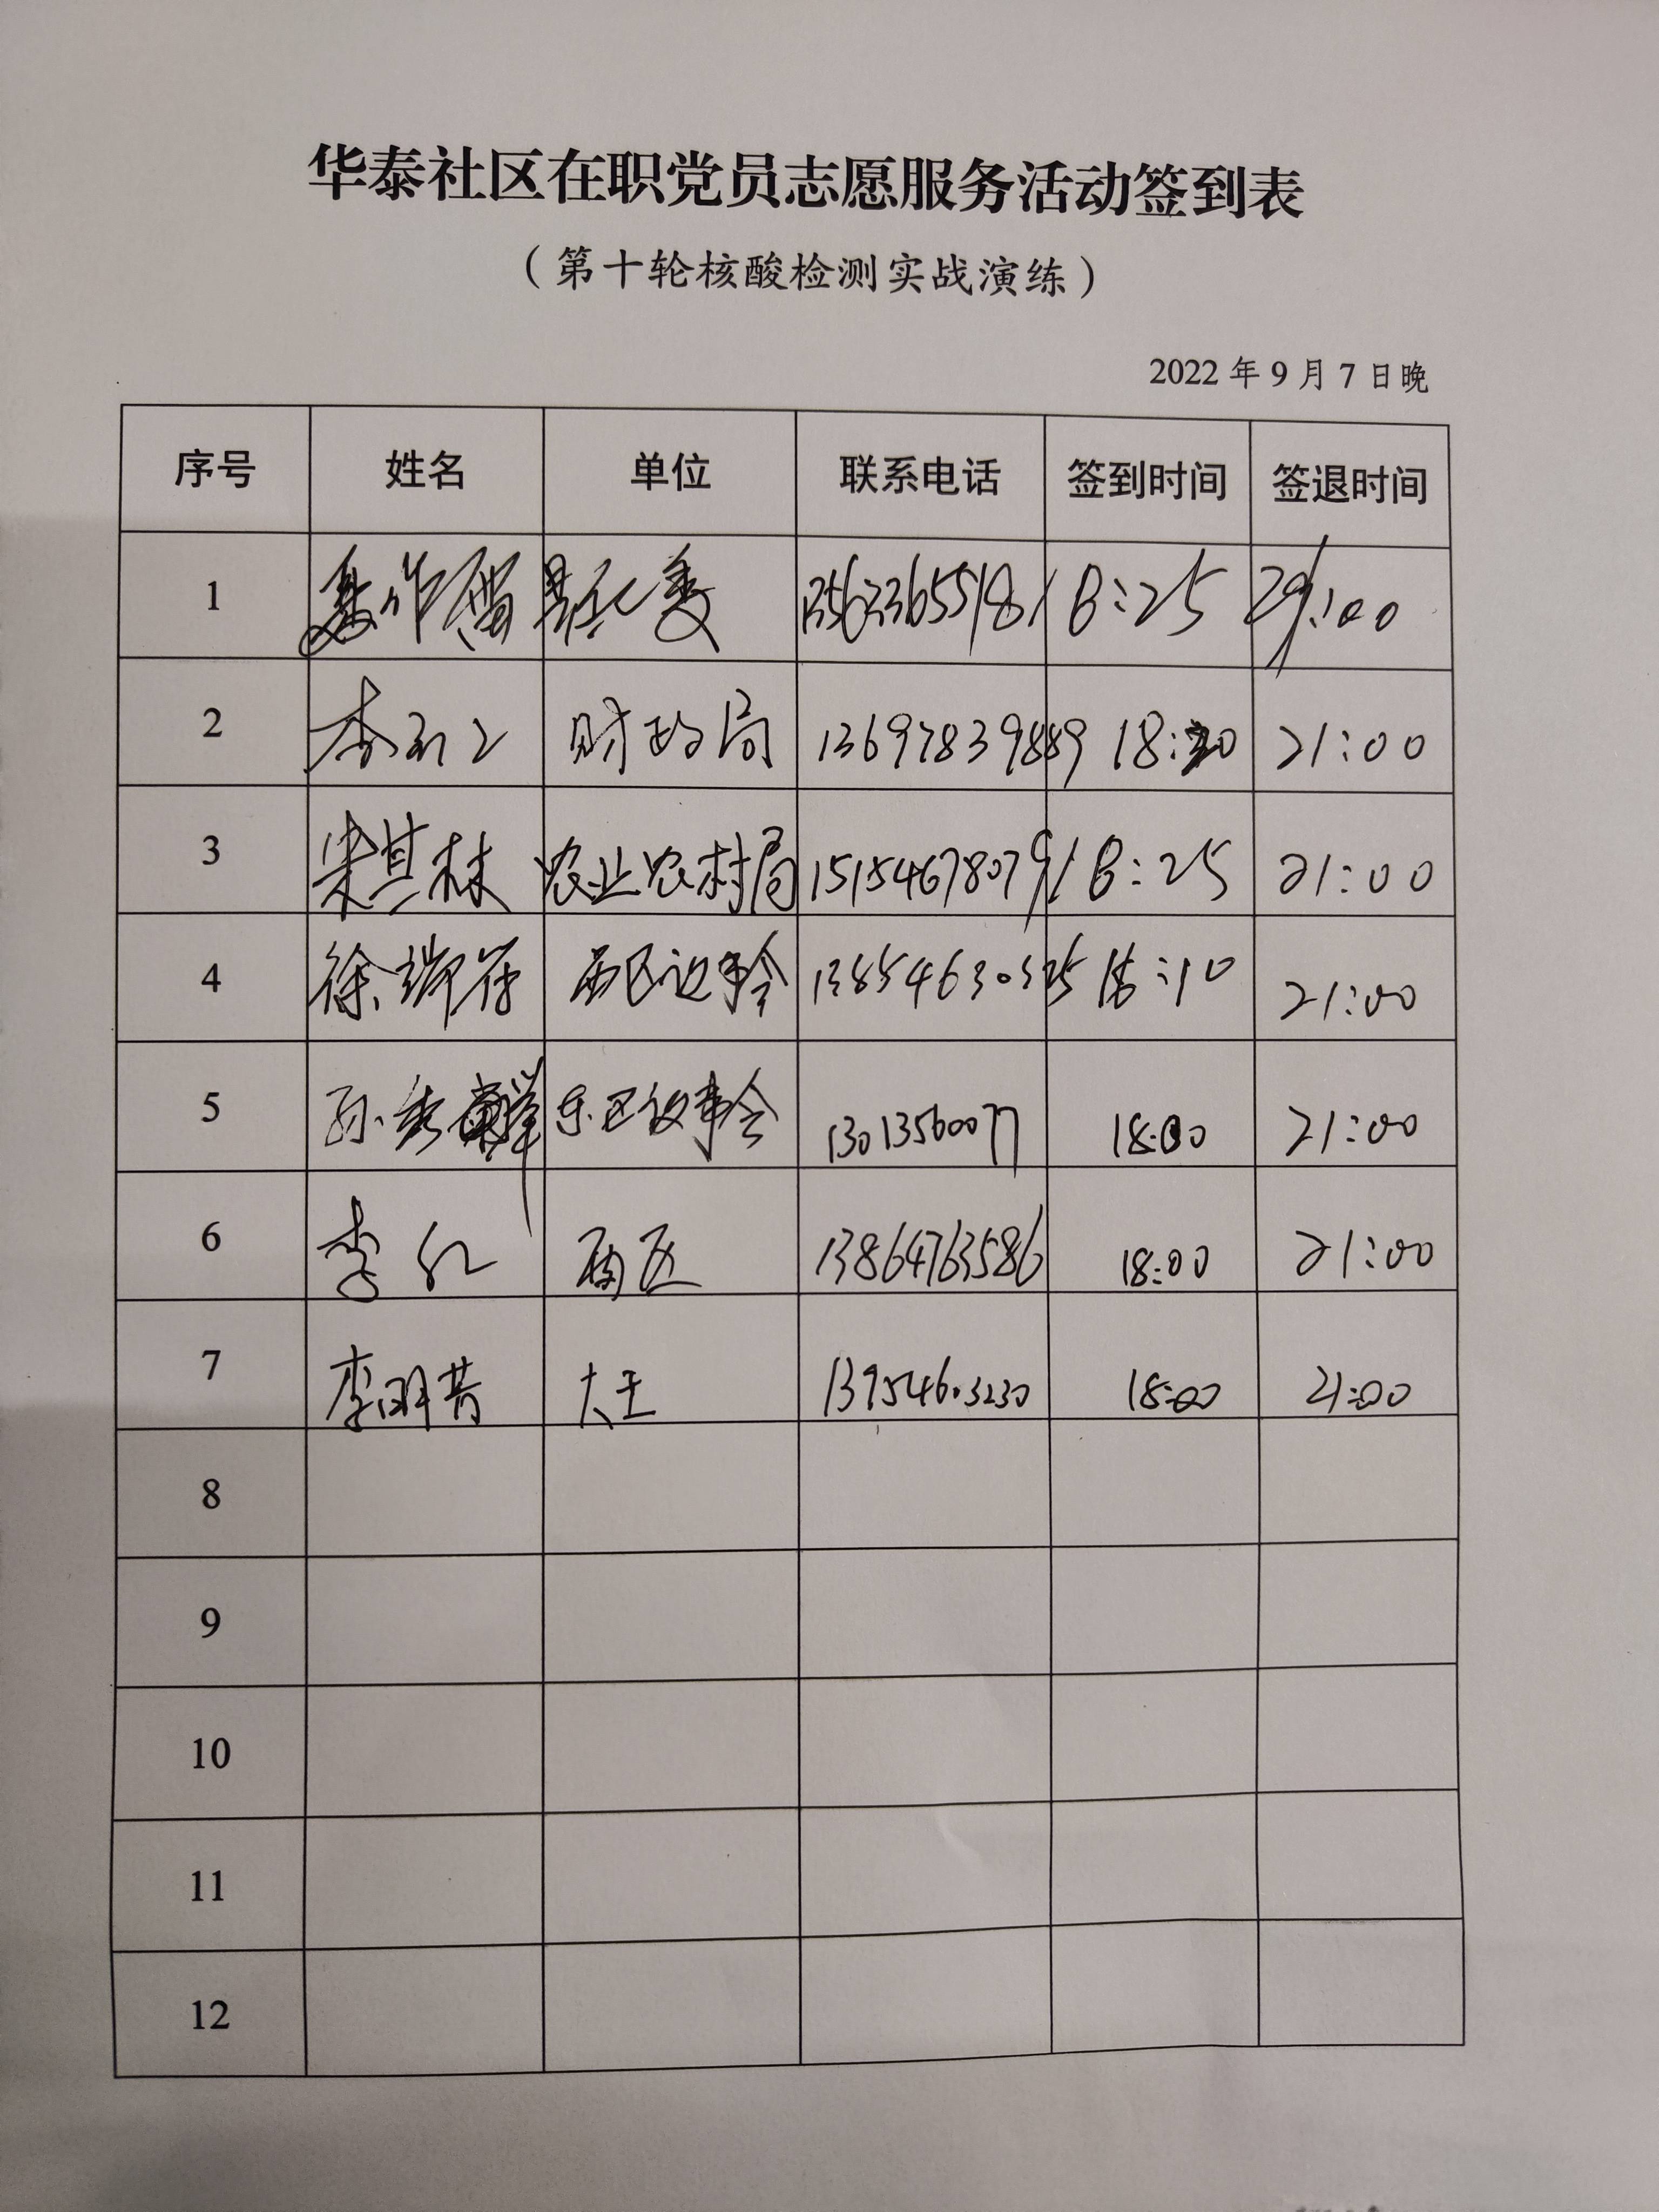 华泰社区在职党员志愿服务活动签到表
（第十轮核酸检测实战演练）
2022年9月7日晚
序号 姓名 单位 联系电话 签到时间 签退时间
1 18:25 21:00
2 李 财政局 13697839889 18:30 21:00
3 宋其林 农业农村局 15154678079 18:25 21:00
4 徐瑞 西区议事会 13854630325 18:10 21:00
5 孙秀 东区议事会 13013560077 18:00 21:00
6 李红 西区 13864763586 18:00 21:00
7 李明芳 大王 13954603230 18:00 21:00
8
9
10
11
12